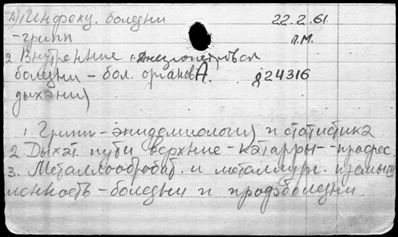 1) Инфекц. болезни 22.2.61.
- грипп п.м.
2 Внутренние 1. Днепропетровск
болезни - бол. органов А. д24316
дыхания)
1. Грипп - эпидемиология и статистика
2 Дыхат. пути верхние - катарры - профес
3. Металлообработ. и металлург. промыш
ленность - болезни и профболезни